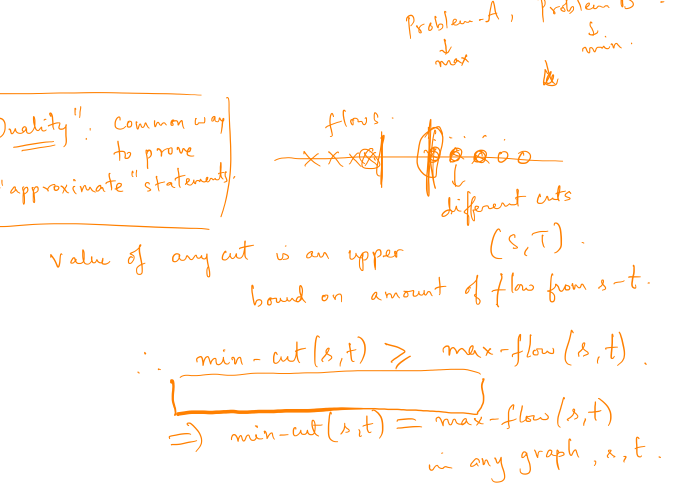 Problem-A, Problem B
max
min.
Duality": common way
to prove
"approximate" statements.
flows.
different cuts
(S,T).
Value of any cut is an upper
bound on amount of flow from s-t.
∴ min-cut(s,t) ≥ max-flow(s,t).
⇒ min-cut(s,t) = max-flow(s,t)
in any graph, s, t.